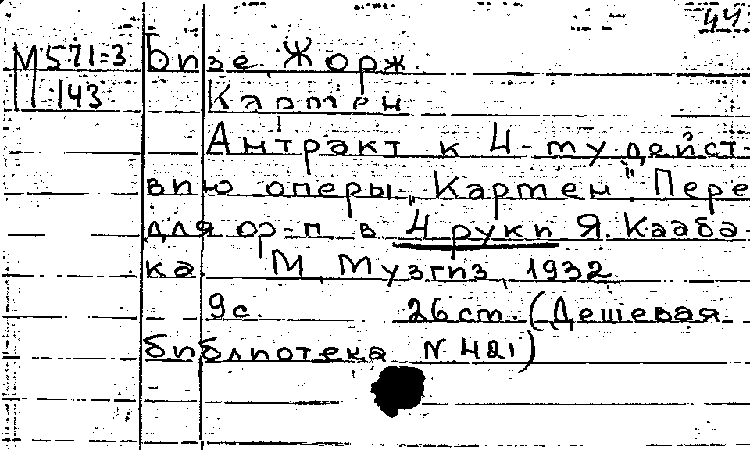 44
М571=3 Бизе, Жорж.
П 143 Кармен
Антракт к 4-му дейст-
вию оперы „Кармен". Пере
для ор-п в 4 руки Я. Кааба-
ка. М., Музгиз, 1932
9с. 26 ст. (Дешевая
библиотека N. 421)